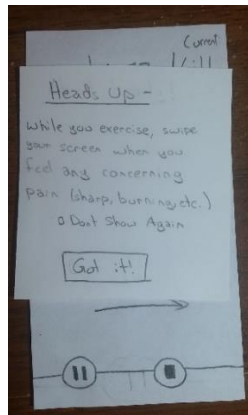 Current
Heads Up -
While you exercise, swipe
your screen when you
feel any concerning
pain (sharp, burning, etc.)
Dont Show Again
Got it!